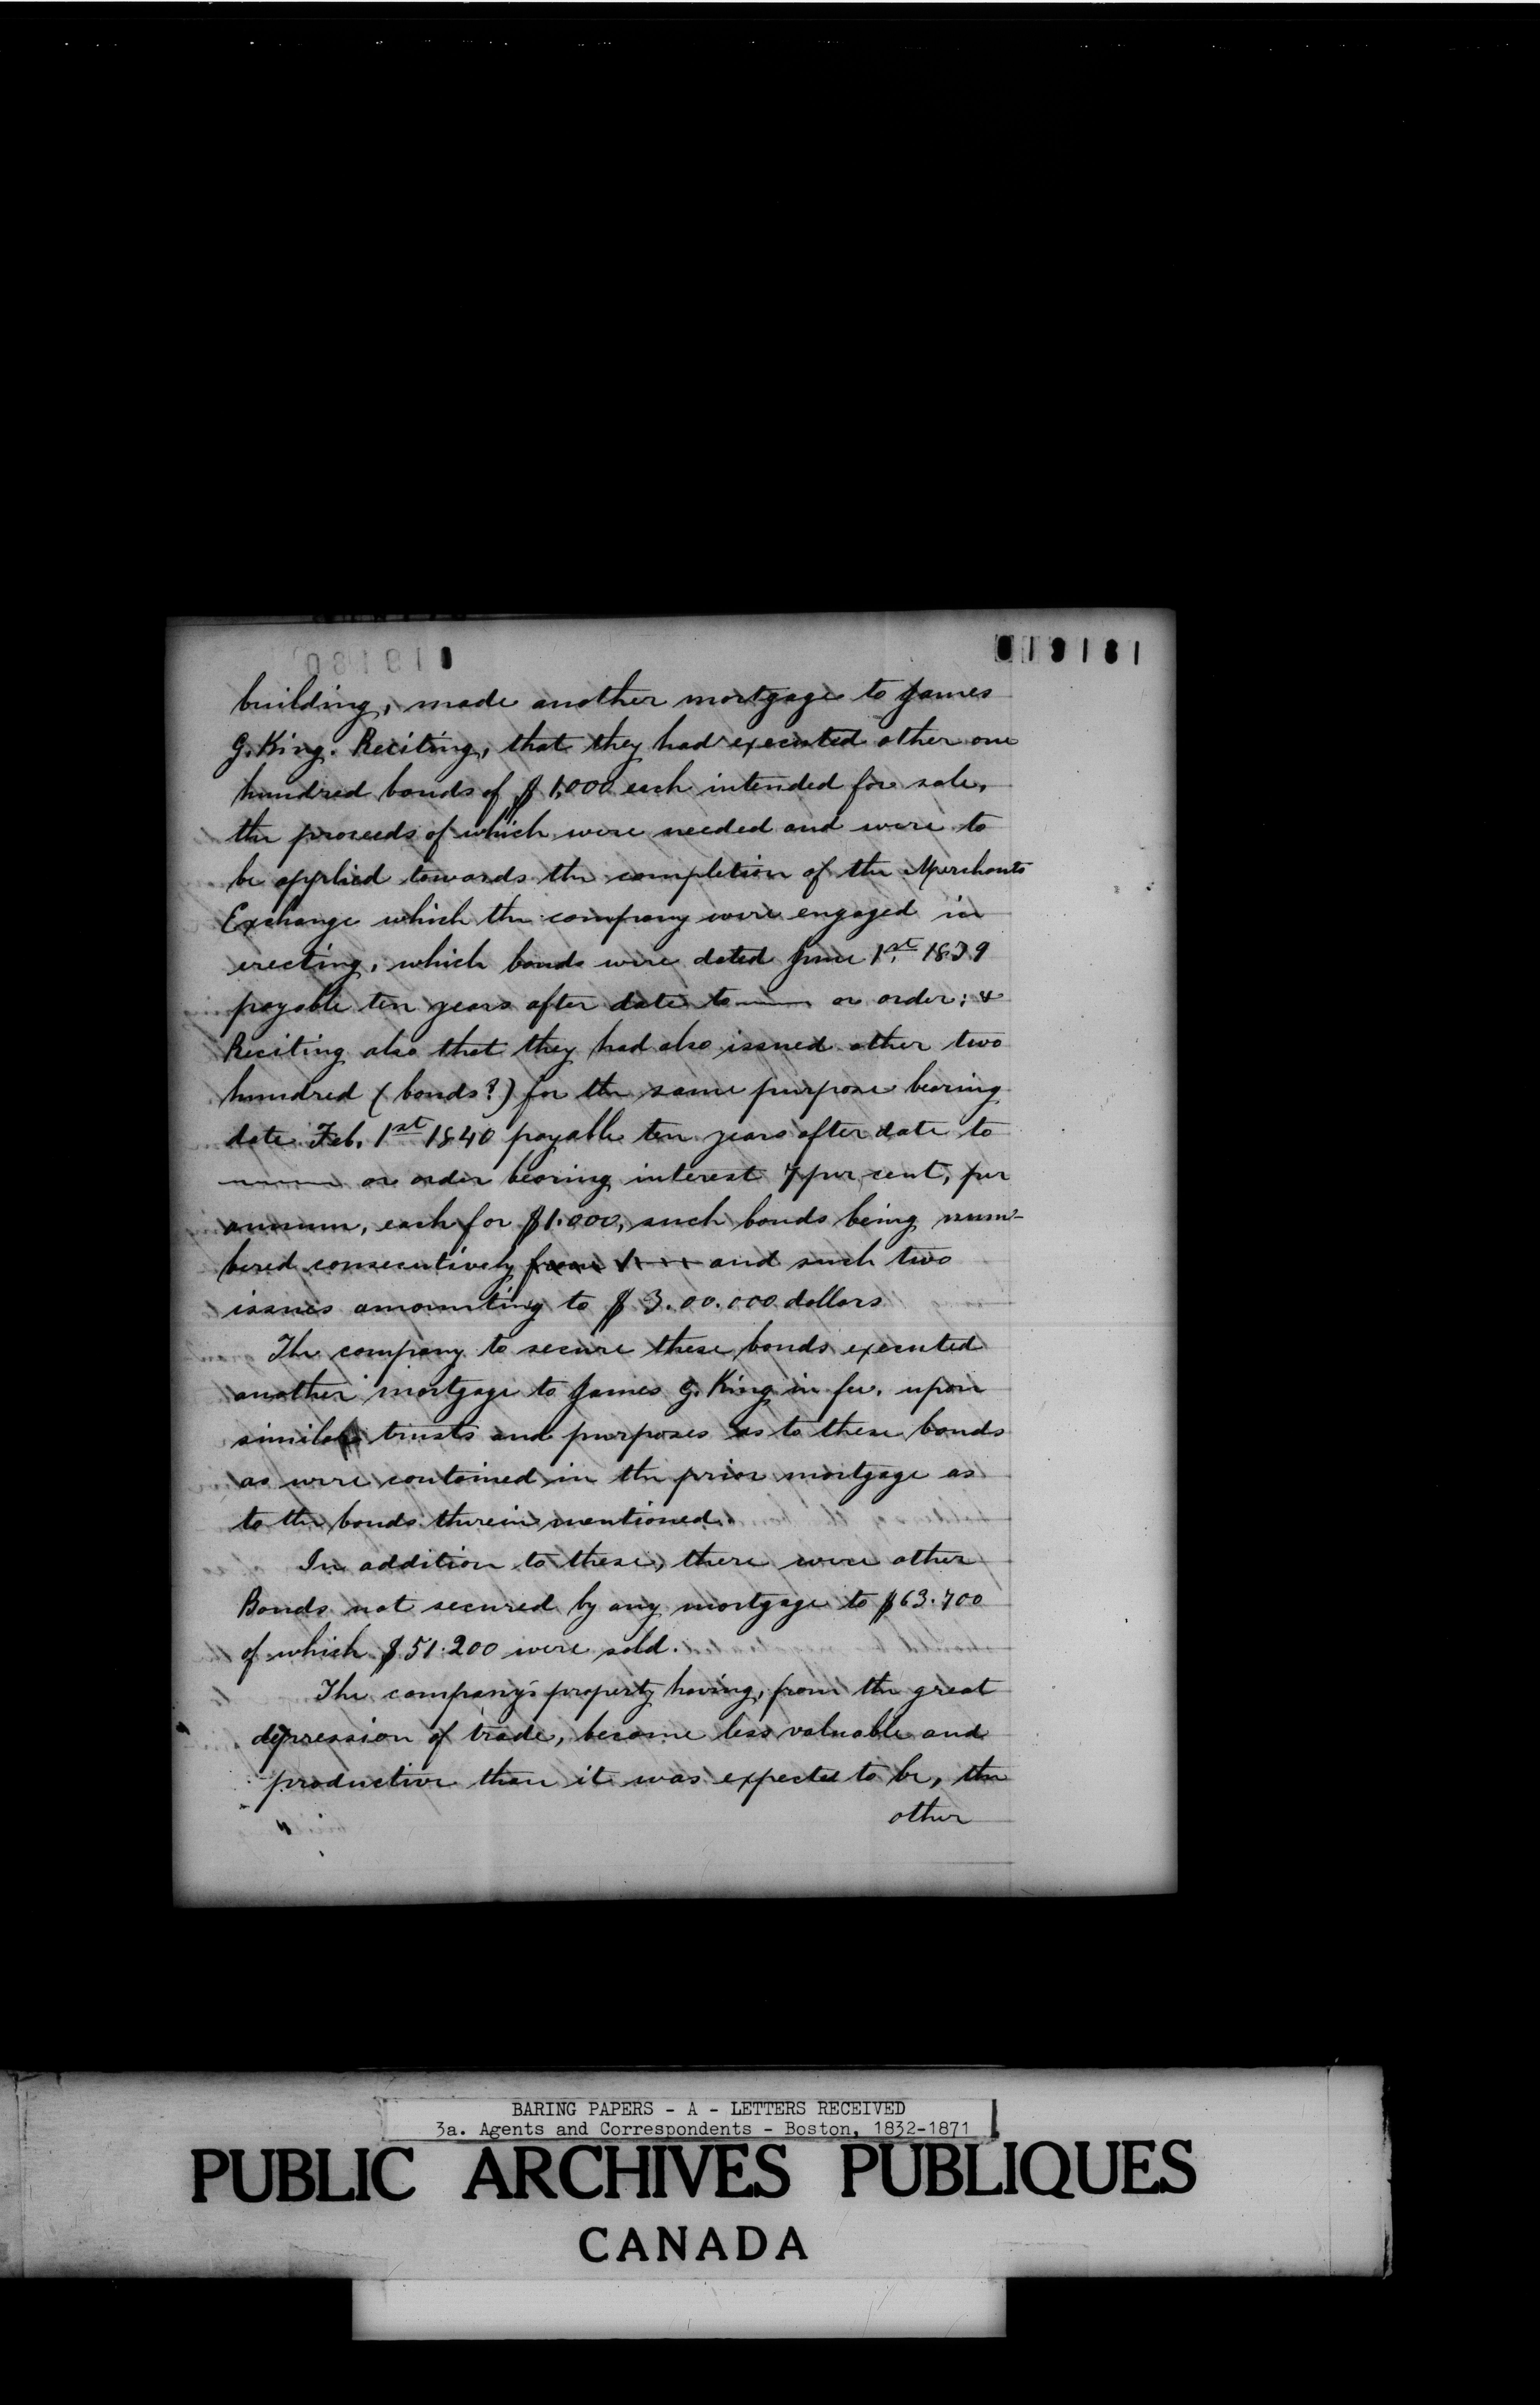 019181
building, made another mortgage to James
G. King. Reciting, that they had executed other one
hundred bonds of $1,000 each intended for sale,
the proceeds of which were needed and were to
be applied towards the completion of the Merchants
Exchange which the company were engaged in
erecting, which bonds were dated June 1st 1839
payable ten years after date to —— or order; &
Reciting also that they had also issued other two
hundred (bonds?) for the same purpose bearing
date Feb. 1st 1840 payable ten years after date to
—— or order bearing interest 7 per cent, per
annum, each for $1.000, such bonds being num-
bered consecutively from 1 --- and such two
issues amounting to $3.00.000 dollars
The company to secure these bonds executed
another mortgage to James G. King in fee, upon
similar trusts and purposes as to these bonds
as were contained in the prior mortgage as
to the bonds therein mentioned.
In addition to these, there were other
Bonds not secured by any mortgage to $63.700
of which $51.200 were sold.
The company's property having, from the great
depression of trade, become less valuable and
productive than it was expected to be, the
other
BARING PAPERS - A - LETTERS RECEIVED
3a. Agents and Correspondents - Boston, 1832-1871
PUBLIC ARCHIVES PUBLIQUES
CANADA